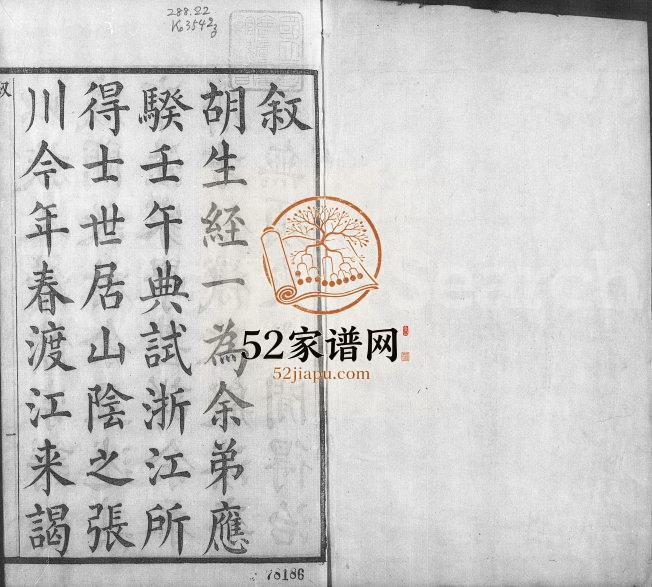 288.22
K03542
叙
胡生經一為余弟應
騤壬午典試浙江所
得士世居山陰之張
川今年春渡江来謁
叙
一
52家谱网
52jiapu.com
76186